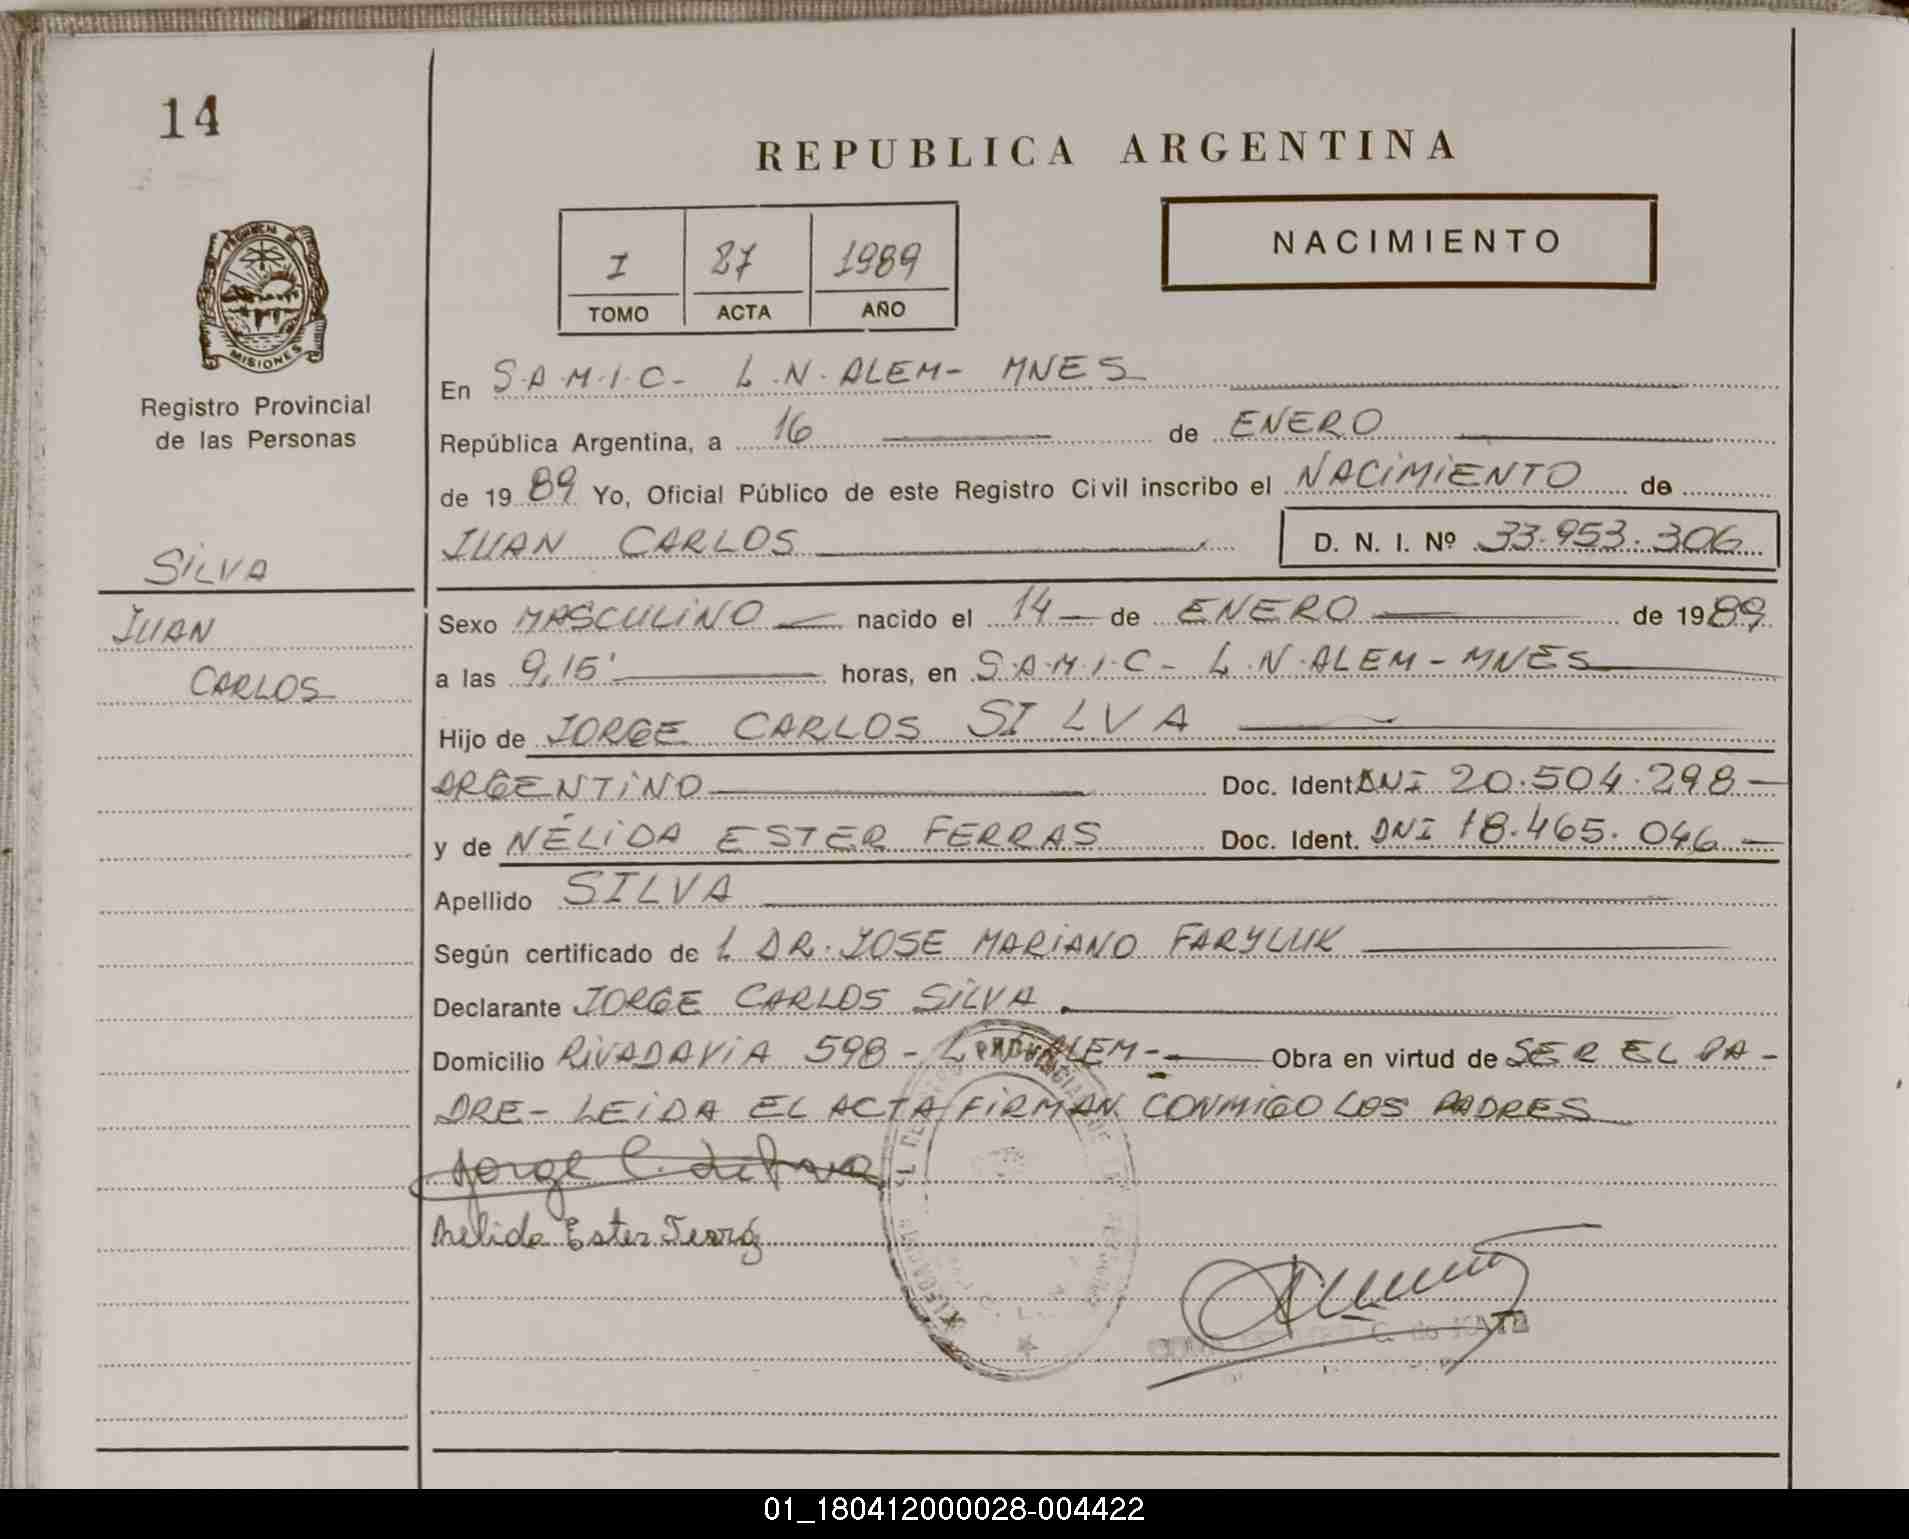 14
REPUBLICA ARGENTINA
PROVINCIA DE
MISIONES
Registro Provincial
de las Personas
I 87 1989
TOMO ACTA AÑO
NACIMIENTO
En S.A.M.I.C- L.N.ALEM- MNES
República Argentina, a 16 de ENERO
de 1989 Yo, Oficial Público de este Registro Civil inscribo el NACIMIENTO de
JUAN CARLOS D. N. I. Nº 33.953.306
SILVA
JUAN
CARLOS
Sexo MASCULINO nacido el 14 de ENERO de 1989
a las 9,15' horas, en S.A.M.I.C- L.N.ALEM-MNES
Hijo de JORGE CARLOS SILVA
ARGENTINO Doc. Ident. DNI 20.504.298-
y de NÉLIDA ESTER FERRAS Doc. Ident. DNI 18.465.046-
Apellido SILVA
Según certificado de l DR. JOSE MARIANO FARYLUK
Declarante JORGE CARLOS SILVA
Domicilio RIVADAVIA 598- L. ALEM- Obra en virtud de SER EL PA-
DRE- LEIDA EL ACTA FIRMAN CONMIGO LOS PADRES
Jorge C.
Nelida Ester Ferráz
01_180412000028-004422